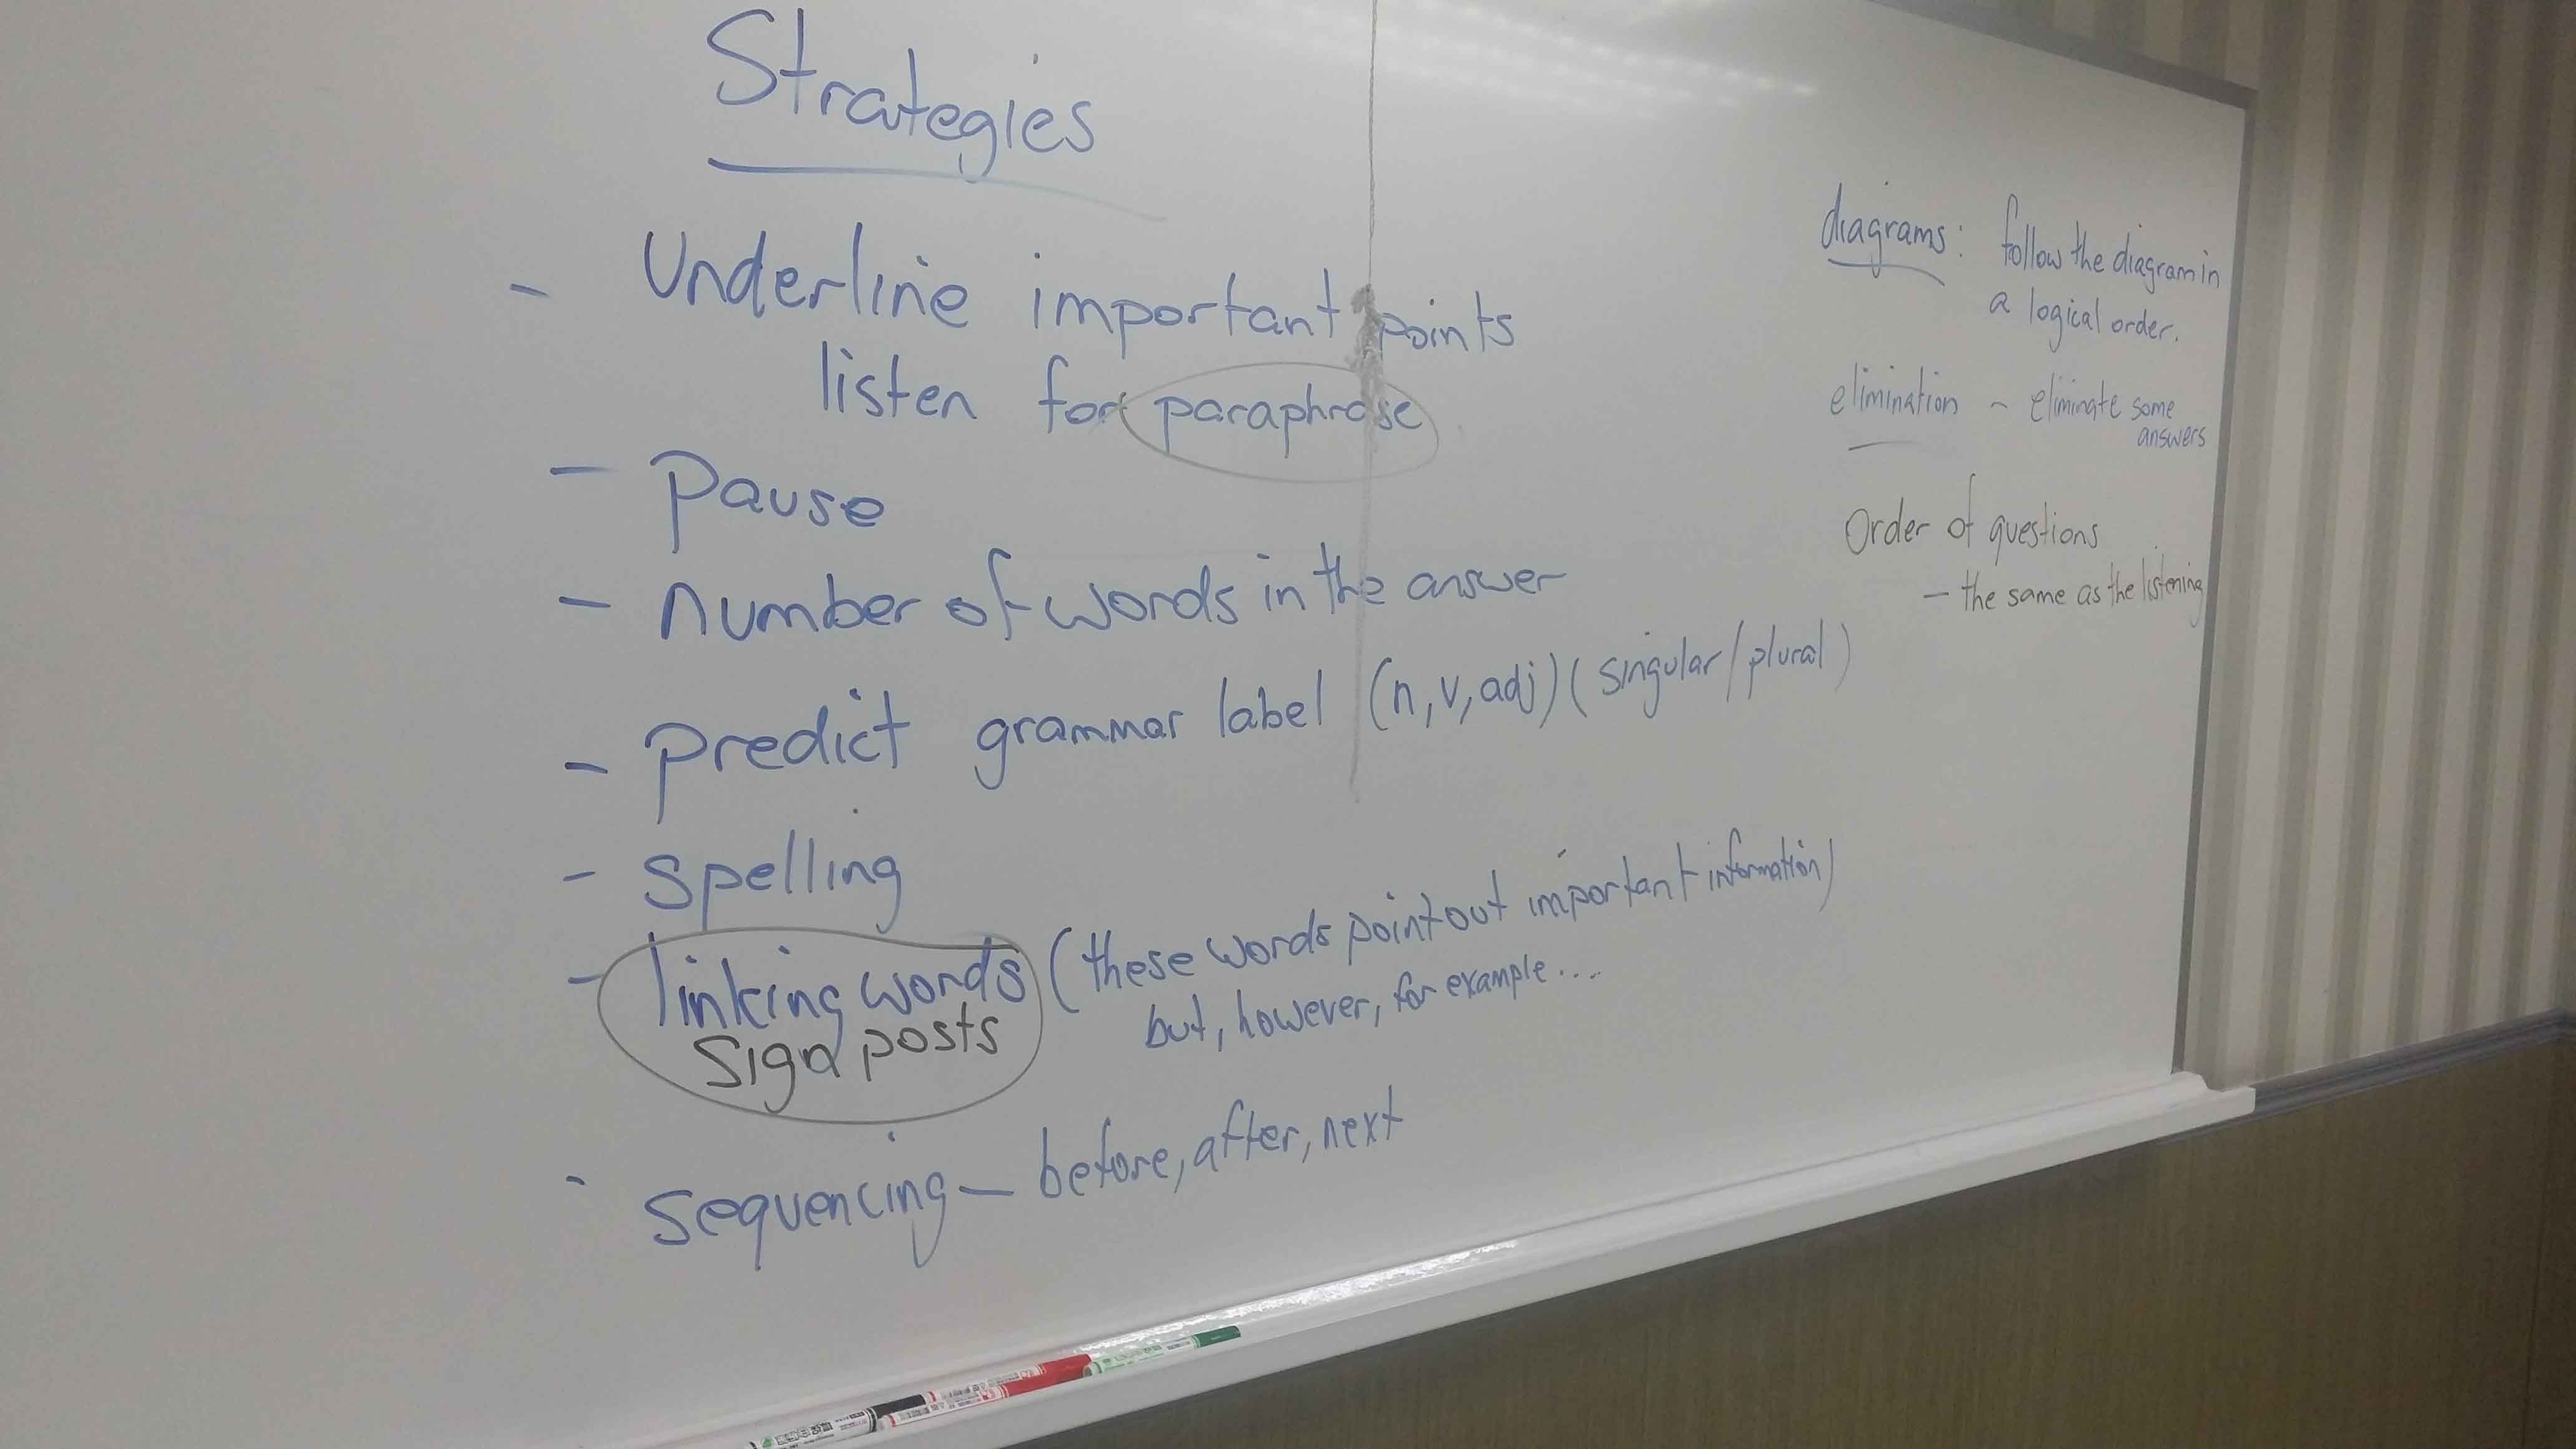 Strategies
- Underline important points
listen for paraphrase
- Pause
- number of words in the answer
- predict grammar label (n, v, adj) (singular/plural)
- spelling
- linking words (these words point out important information)
sign posts but, however, for example....
- sequencing – before, after, next
diagrams: follow the diagram in
a logical order.
elimination - eliminate some
answers
Order of questions
- the same as the listening